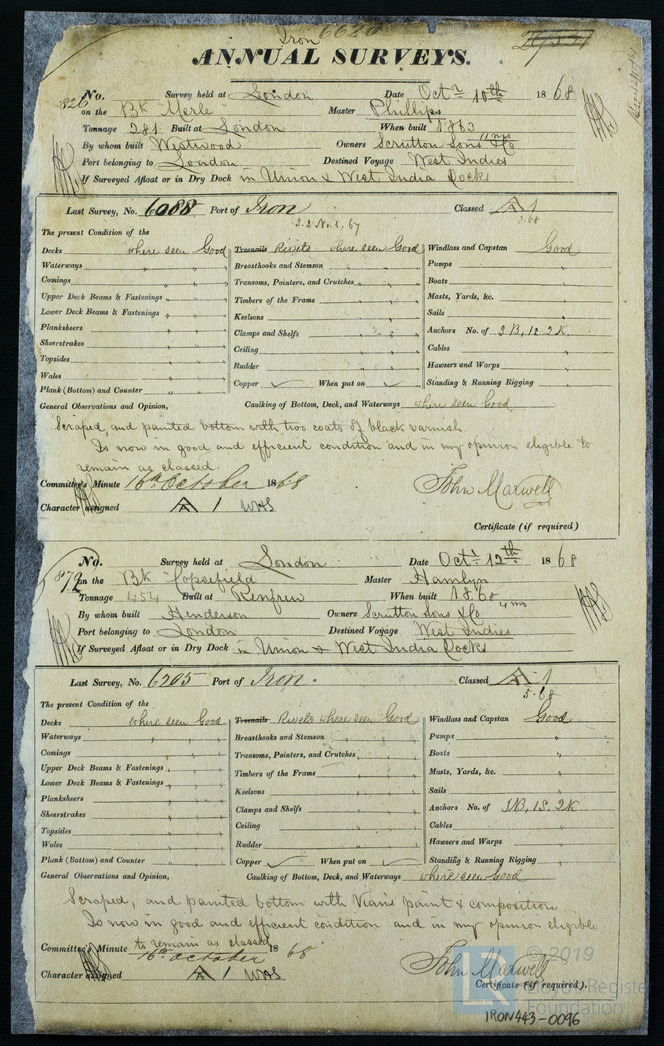 Iron 6626
ANNUAL SURVEYS.
No. Survey held at London Date Octr 10th 1868
326 on the Bk Merle Master Phillips
Tonnage 281 Built at London When built 1863
11 mo
By whom built Westwood Owners Scrutton Sons & Co
Port belonging to London Destined Voyage West Indies
If Surveyed Afloat or in Dry Dock in Union & West India Docks
Last Survey, No. 6088 Port of Iron Classed A 1
S.S. No. 1. 67 3.68
The present Condition of the
Decks where seen Good Treenails Rivets where seen Good Windlass and Capstan Good
Waterways " " Breasthooks and Stemson " " Pumps "
Comings " " Transoms, Pointers, and Crutches " " Boats "
Upper Deck Beams & Fastenings " " Timbers of the Frame " " Masts, Yards, &c. "
Lower Deck Beams & Fastenings " " Keelsons " " Sails "
Planksheers " " Clamps and Shelfs " " Anchors No. of 3B, 1S. 2K
Sheerstrakes " " Ceiling " " Cables "
Topsides " " Rudder " " Hawsers and Warps "
Wales " " Copper ✓ When put on ✓ Standing & Running Rigging "
Plank (Bottom) and Counter " "
General Observations and Opinion, Caulking of Bottom, Deck, and Waterways where seen Good
Scraped, and painted bottom with two coats of black varnish.
Is now in good and efficient condition and in my opinion eligible to
remain as classed.
Committee's Minute 16th October 1868 John Maxwell
Character assigned A 1 WHS
Certificate (if required)
No. Survey held at London Date Octr 12th 1868
872 on the Bk Copsefield Master Hamlyn
Tonnage 454 Built at Renfrew When built 1868
4 mo
By whom built Henderson Owners Scrutton Sons & Co
Port belonging to London Destined Voyage West Indies
If Surveyed Afloat or in Dry Dock in Union & West India Docks
Last Survey, No. 6205 Port of Iron. Classed A 1
5.68
The present Condition of the
Decks where seen Good Treenails Rivets where seen Good Windlass and Capstan Good
Waterways " " Breasthooks and Stemson " " Pumps "
Comings " " Transoms, Pointers, and Crutches " " Boats "
Upper Deck Beams & Fastenings " " Timbers of the Frame " " Masts, Yards, &c. "
Lower Deck Beams & Fastenings " " Keelsons " " Sails "
Planksheers " " Clamps and Shelfs " " Anchors No. of 3B, 1S. 2K
Sheerstrakes " " Ceiling " " Cables "
Topsides " " Rudder " " Hawsers and Warps "
Wales " " Copper ✓ When put on ✓ Standing & Running Rigging "
Plank (Bottom) and Counter " "
General Observations and Opinion, Caulking of Bottom, Deck, and Waterways where seen Good
Scraped, and painted bottom with paint & composition
Is now in good and efficient condition and in my opinion eligible
to remain as classed
Committee's Minute 16th October 1868 John Maxwell
Character assigned A 1 WHS
Certificate (if required).
© 2019
LR
Lloyd's Register
Foundation
IRON443-0096